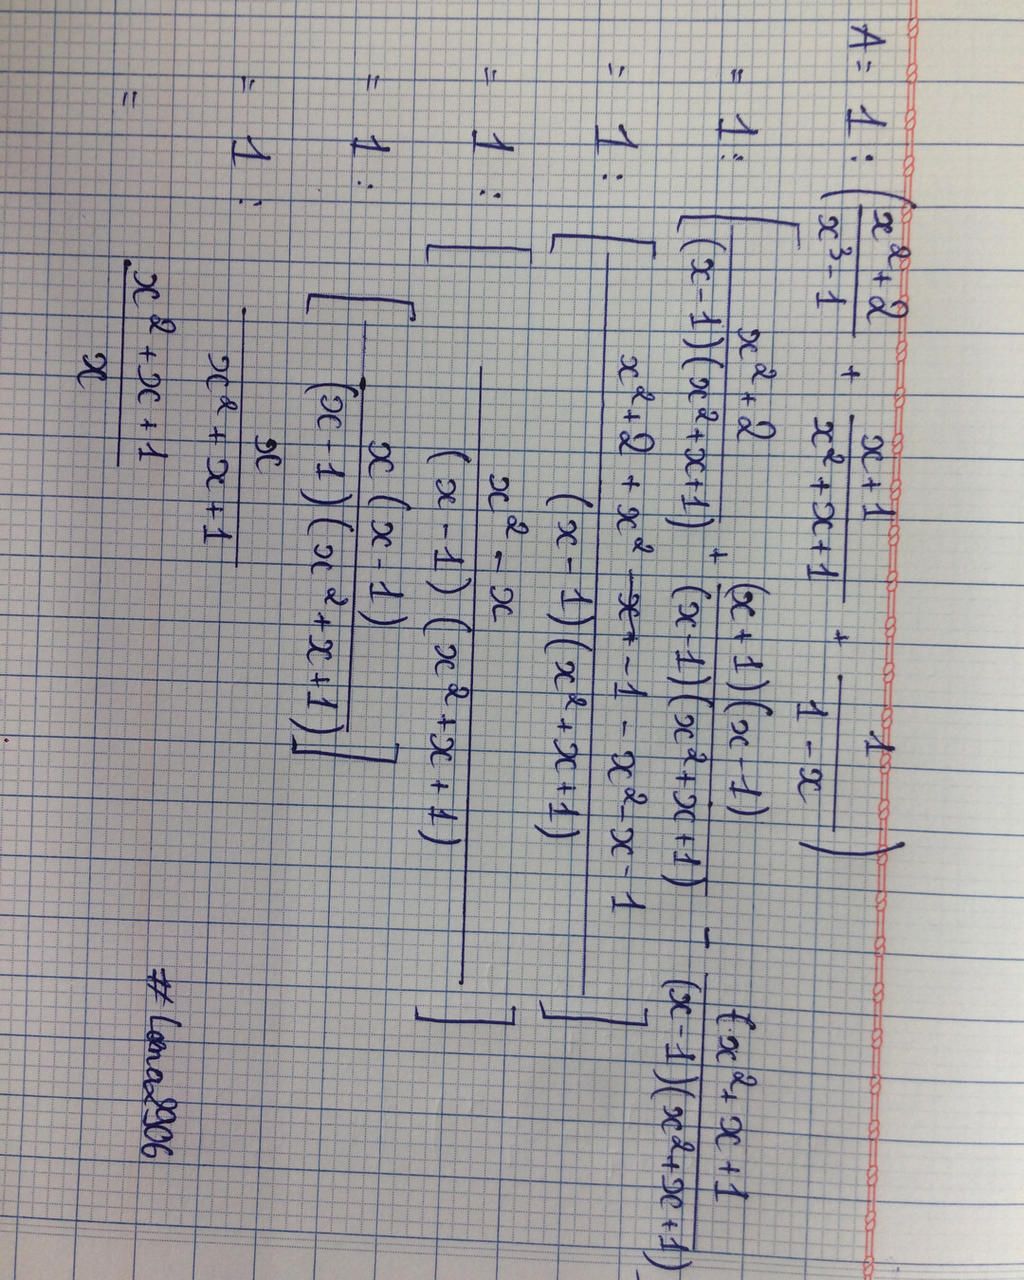 A = 1 : ( (x² + 2)/(x³ - 1) + (x + 1)/(x² + x + 1) + 1/(1 - x) )
= 1 : [ (x² + 2)/((x - 1)(x² + x + 1)) + ((x + 1)(x - 1))/((x - 1)(x² + x + 1)) - (x² + x + 1)/((x - 1)(x² + x + 1))
= 1 : [ (x² + 2 + x² - 1 - x² - x - 1)/((x - 1)(x² + x + 1)) ]
= 1 : [ (x² - x)/((x - 1)(x² + x + 1)) ]
= 1 : [ (x(x - 1))/((x - 1)(x² + x + 1)) ]
= 1 : x/(x² + x + 1)
= (x² + x + 1)/x